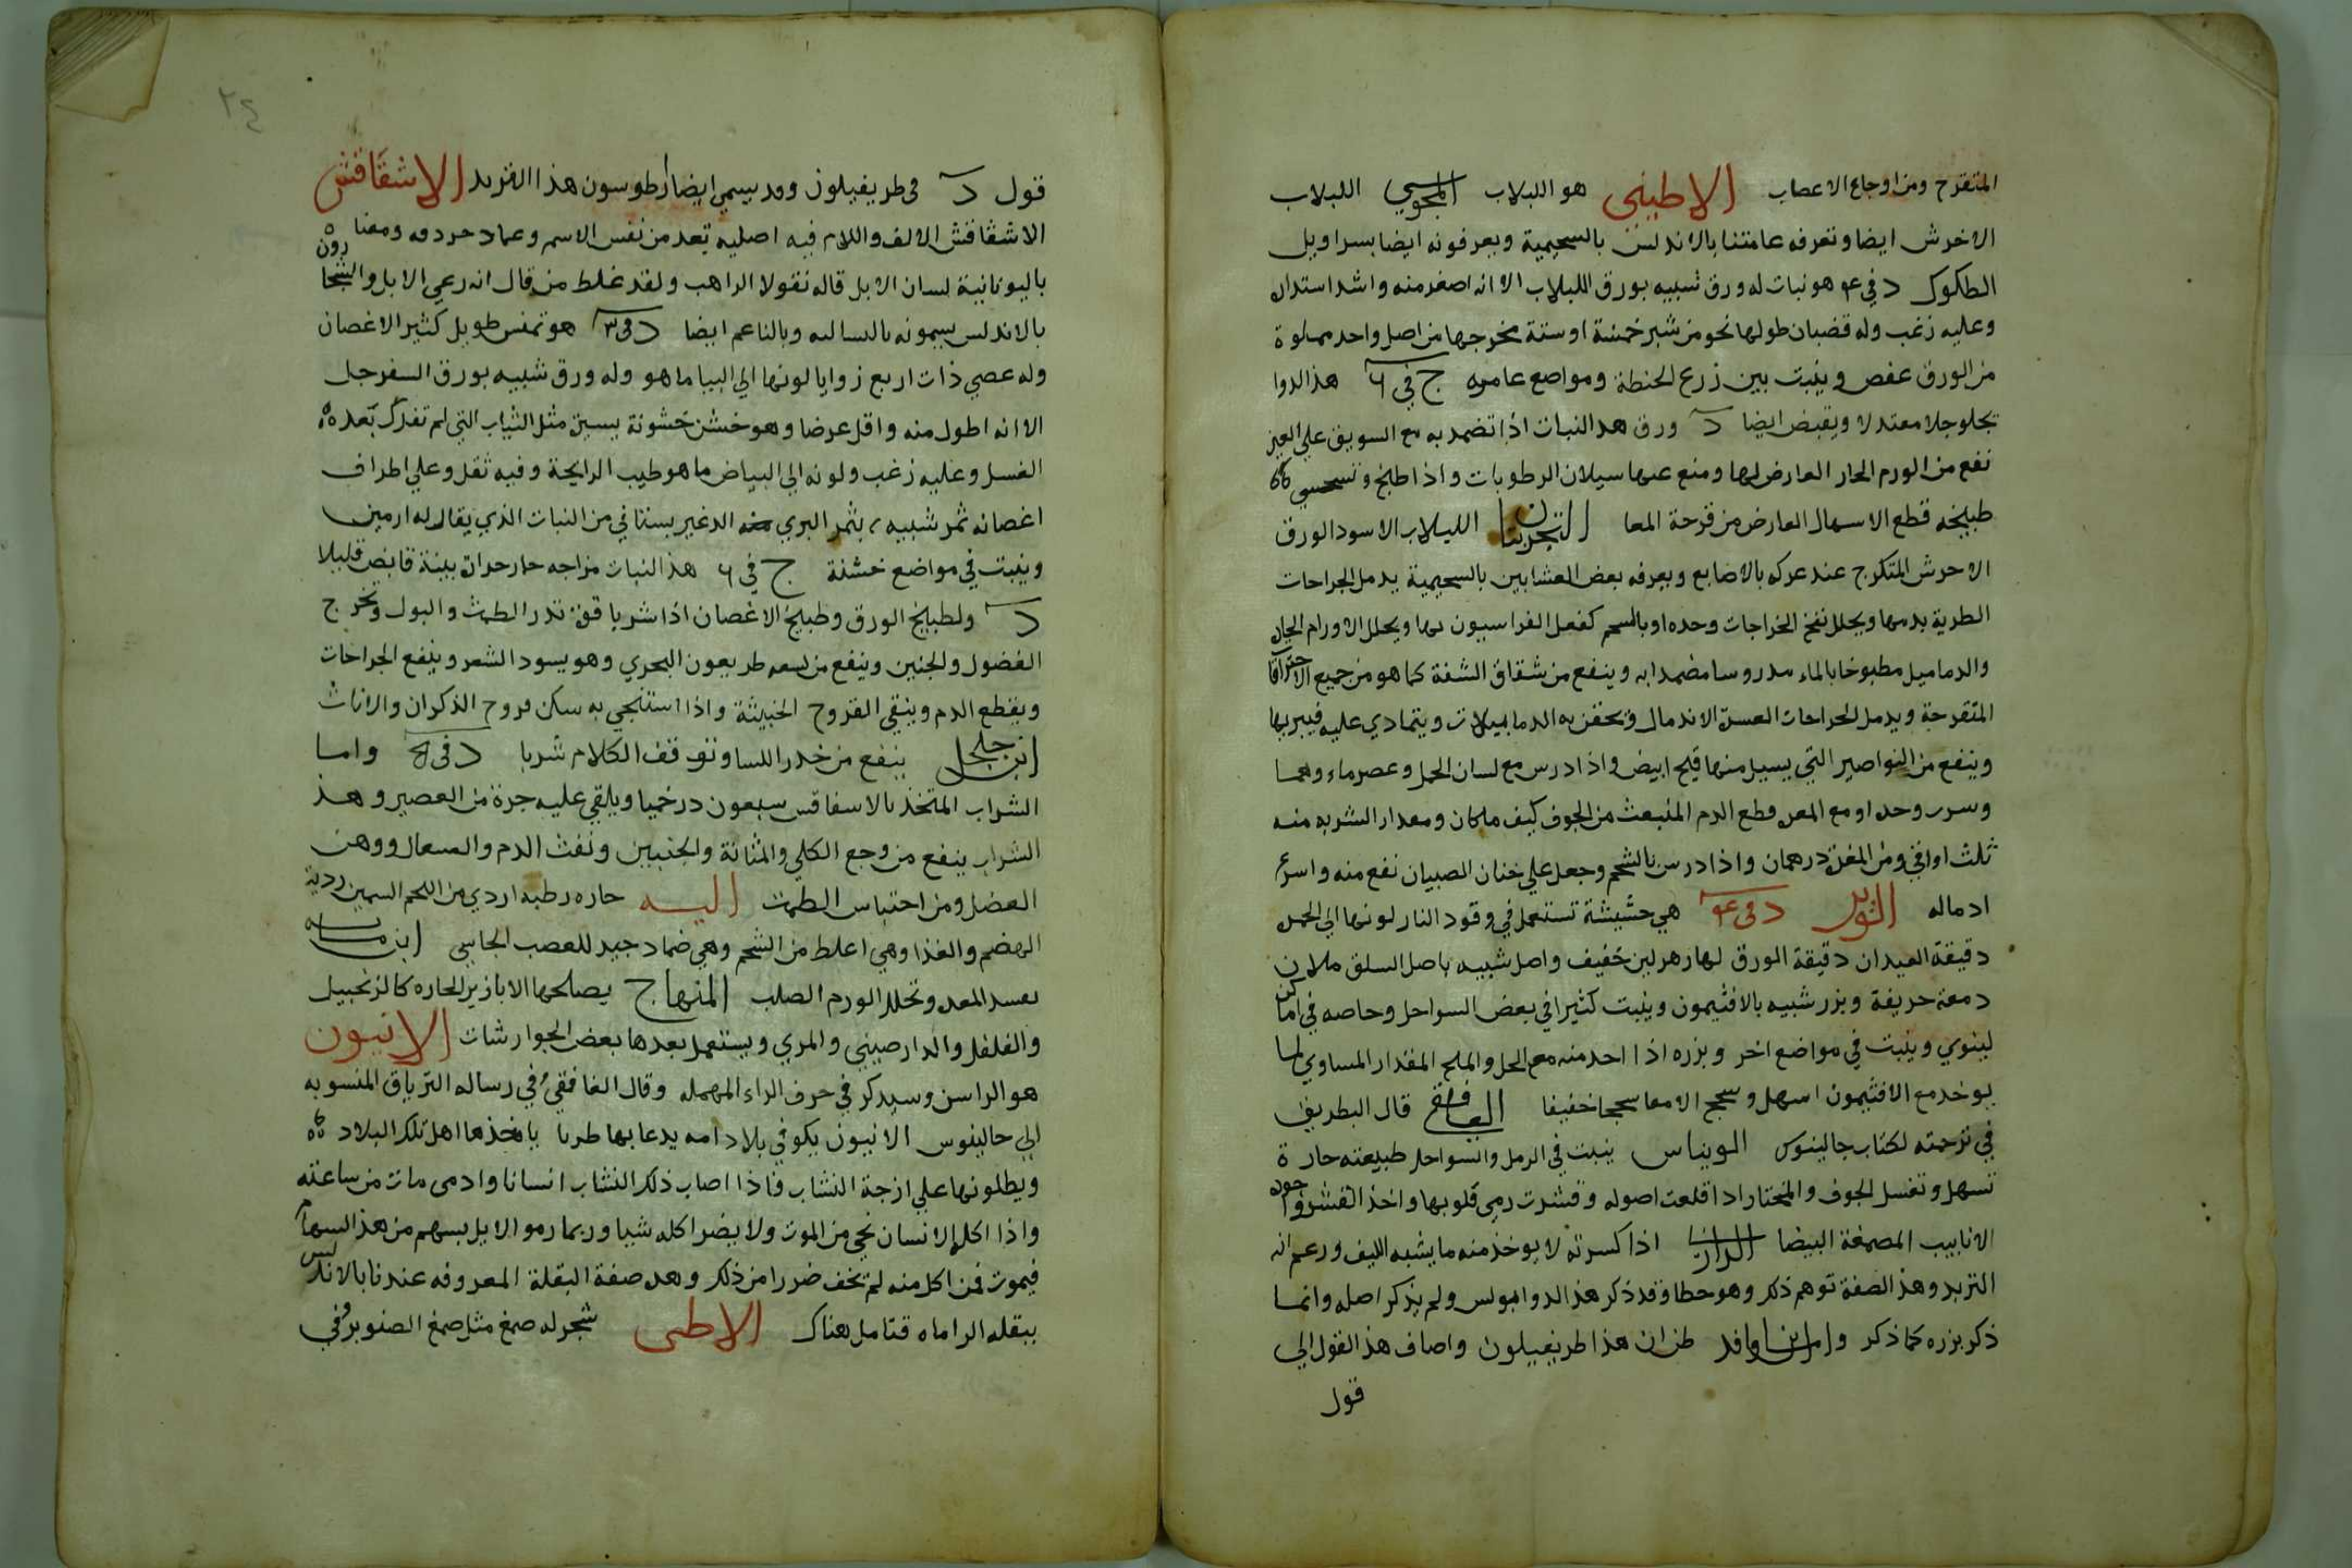 المتقرح ومن اوجاع الاعصاب الاطيني هو اللبلاب المجوسي اللبلاب
الاخرش ايضا وتعرفه عامتنا بالاندلس بالسحيمية ويعرفونه ايضا بسراويل
الطكوك د في ٤ هو نبات له ورق شبيه بورق اللبلاب الا انه اصغر منه واشد استداره
وعليه زغب وله قضبان طولها نحو من شبر خمسة او ستة مخرجها من اصل واحد مملوة
من الورق عفص وينبت بين زرع الحنطة ومواضع عامره ج في ٦ هذا الدوا
يجلو جلا معتدلا ويقبض ايضا د ورق هذا النبات اذا تضمد به مع السويق علي العين
نفع من الورم الحار العارض لها ومنع عنها سيلان الرطوبات واذا طبخ وتحسي
طبيخه قطع الاسهال العارض من قرحة المعا التجربتان اللبلاب الاسود الورق
الاحرش المتكرج عند عركه بالاصابع ويعرفه بعض العشابين بالسحيمية يدمل الجراحات
الطرية بدمها ويحلل نفخ الخراجات وحده او بالشحم كفعل الفراسيون بها ويحلل الاورام الحاره
والدماميل مطبوخا بالماء مدروسا مضمدا به وينفع من شقاق الشفة كما هو من جميع الاحتراقات
المتقرحة ويدمل الجراحات العسرة الاندمال وتحقن به الدماميلات ويتمادي عليه فيبريها
وينفع من النواصير التي يسيل منها قيح ابيض واذا درس مع لسان الحمل وعصر ماءوهما
وشرب وحده او مع المغره قطع الدم المنبعث من الجوف كيف ما كان ومقدار الشربه منه
ثلث اواقي ومن المغرة درهمان واذا درس بالشحم وجعل علي ختان الصبيان نفع منه واسرع
ادماله د في ٤ هي حشيشة تستعمل في وقود النار لونها الي الحمرة
دقيقة العيدان دقيقة الورق لها زهر لين خفيف واصل شبيه باصل السلق ملان
دمعة حريفة وبزر شبيه بالافثيمون وينبت كثيرا في بعض السواحل وخاصه في اماكن
لينوي وينبت في مواضع اخر وبزره اذا اخذ منه مع الخل والملح المقدار المساوي لما
يوخذ مع الافثيمون اسهل وسحج الامعا سحجا خفيفا الغافقي قال البطريق
في ترجمته لكتاب جالينوس ينبت في الرمل والسواحل طبيعته حارة
تسهل وتغسل الجوف والمختار اذا قلعت اصوله وقشرت رمي قلوبها واخذ القشر وجوده
الانابيب المصمغة البيضا الرازي اذا كسرته لا يوخذ منه ما يشبه الليف وزعم انه
التربد وهذ الصفة توهم ذلك وهو خطا وقد ذكر هذ الدوا بولس ولم يذكر اصله وانما
ذكر بزره كما ذكر وابن وافد ظن ان هذا طريفيلون واضاف هذ القول الي
قول
٢٤
قول د في طريفيلون وقد يسمي ايضا هذا التربد الاشقاقش
الاشقاقش الالف واللام فيه اصليه تعد من نفس الاسم وعماد حروفه ومعناه
باليونانية لسان الابل قاله نقولا الراهب ولقد غلط من قال انه رعي الابل والشجارون
بالاندلس يسمونه بالسالبه وبالناعم ايضا د في ٣ هو تمنس طويل كثير الاغصان
وله عصي ذات اربع زوايا لونها الي البياض ما هو وله ورق شبيه بورق السفرجل
الا انه اطول منه واقل عرضا وهو خشن خشونة يسيرة مثل الثياب التي لم تفرك بعده
الغسل وعليه زغب ولونه الي البياض ما هو طيب الرايحة وفيه ثقل وعلي اطراف
اغصانه ثمر شبيه بثمر البري الذي غير بستاني من النبات الذي يقال له ارمين
وينبت في مواضع خشنة ج في ٦ هذا النبات مزاجه حار حرارة بينة قابض قليلا
د ولطبيخ الورق وطبيخ الاغصان اذا شربا قوة تدر الطمث والبول وتخرج
الفضول والجنين وينفع من لسعه طريعون البحري وهو يسود الشعر وينفع الجراحات
ويقطع الدم وينقي القروح الخبيثة واذا استنجي به سكن قروح الذكران والاناث
ابن جلجل ينفع من خدر اللسان وتوقف الكلام شربا د في ٥ واما
الشراب المتخذ بالاسفاقس سبعون درخميا ويلقي عليه جرة من العصير وهذ
الشراب ينفع من وجع الكلي والمثانة والجنبين ونفث الدم والسعال ووهن
العضل ومن احتباس الطمث اليه حاره رطبه اردي من اللحم السمين ردية
الهضم والغذا وهي اغلظ من الشحم وهي ضماد جيد للعصب الجاسي ابن ماسه
يفسد المعده وتحلل الورم الصلب المنهاج يصلحها الابازير الحاره كالزنجبيل
والفلفل والدارصيني والمري ويستعمل بعدها بعض الجوارشات الانيون
هو الراسن وسيذكر في حرف الراء المهمله وقال الغافقي في رساله الترياق المنسوبه
الي جالينوس الانيون يكون في بلاد امه يدعا بها طربا ياخذها اهل تلك البلاد
ويطلونها علي ازجة النشاب فاذا اصاب ذلك النشاب انسانا وادمي مات من ساعته
واذا اكله الانسان نجي من الموت ولا يضر اكله شيا وربما رمو الايل بسهم من هذ السهام
فيموت فمن اكل منه لم يخف ضررا من ذلك وهذ صفة البقلة المعروفه عندنا بالاندلس
ببقلة الراماه فتامل هناك شجر له صمغ مثل صمغ الصنوبر وفي